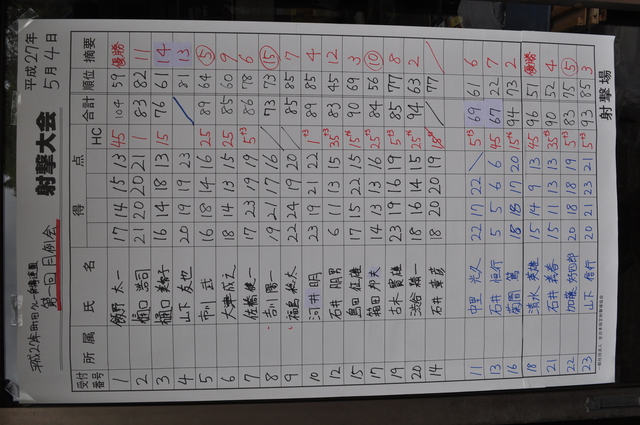 平成27年
5月4日
射撃大会
第一回 月例会
射撃場
受付番号 所属 氏名 得点 HC 合計 順位 摘要
1 太一 17 14 15 13 45 104 59 優勝
2 樋口 浩司 21 20 20 21 1 83 82 11
3 樋口 16 14 18 13 15 76 61 14
4 山下 友也 20 19 19 23 81 13
5 市川 武 16 18 14 16 25 89 64 5
6 大津 成之 18 14 13 15 25 85 60 9
7 佐橋 俊一 17 23 19 19 5+3 86 78 6
8 吉川 陽一 19 21 17 16 73 73 15
9 福島 22 24 19 20 85 85 7
10 河井 明 23 19 21 22 1+3 89 85 4
12 石井 朋男 6 11 13 15 35+3 83 45 12
15 島田 征雄 17 15 22 15 15+6 90 69 3
17 箱田 邦夫 14 13 13 16 25+3 84 56 10
19 古木 實雄 23 19 16 19 5+3 85 77 8
20 渋谷 雄一 18 16 14 15 25+6 94 63 2
14 石井 重彦 18 20 20 19 77
11 中里 光久 22 17 22 5+3 69 61 6
13 石井 恒行 5 5 6 6 45 67 22 7
16 菊間 篤 18 18 17 20 15+6 94 73 2
18 清水 英雄 15 14 9 13 45 96 51 優勝
21 石井 美春 15 11 13 13 35+3 90 52 4
22 加藤 好四郎 20 18 18 19 5+3 83 75 5
23 山下 信行 20 21 23 21 5+3 93 85 3